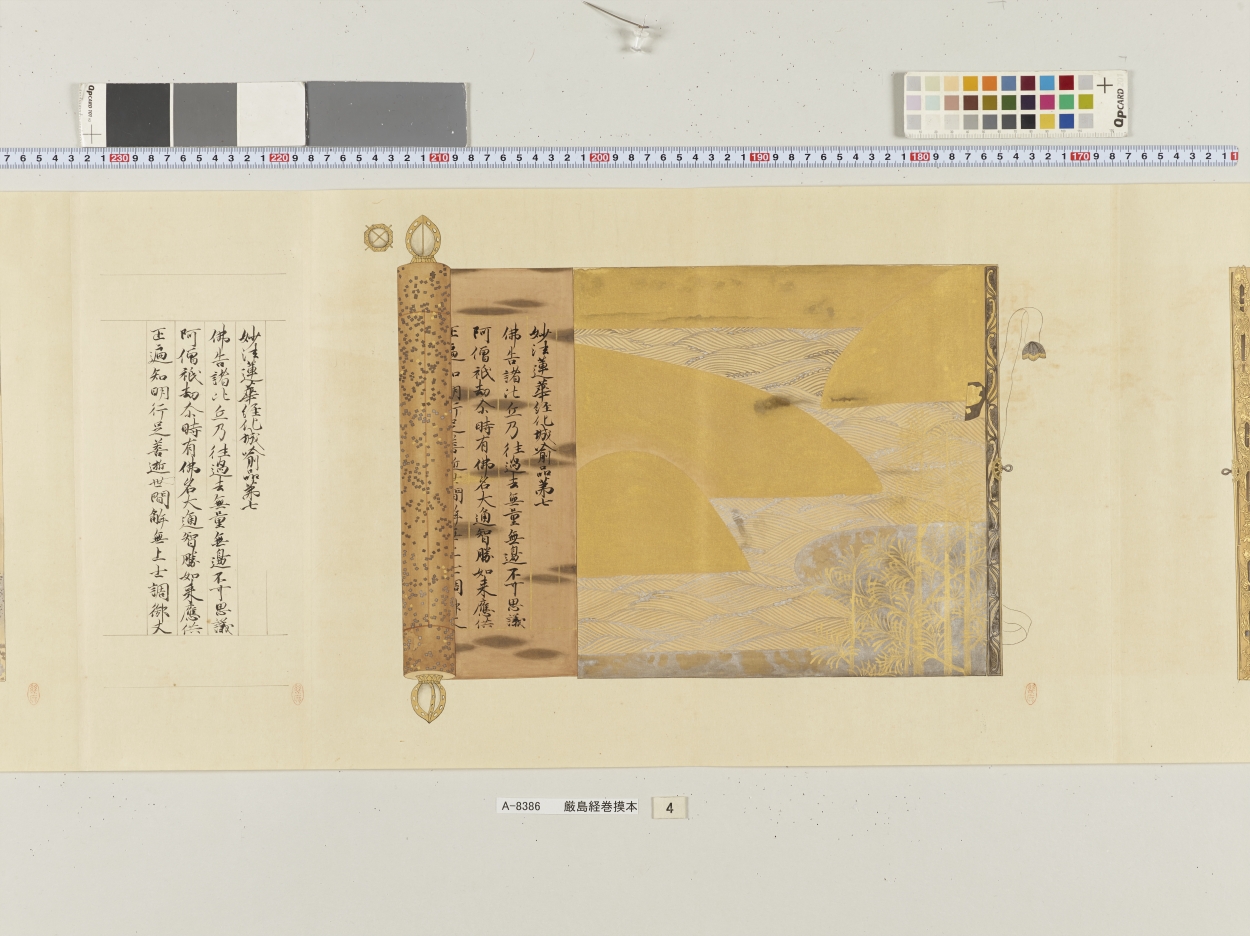 QPCARD 101
QPCARD
7 6 5 4 3 2 1 230 9 8 7 6 5 4 3 2 1 220 9 8 7 6 5 4 3 2 1 210 9 8 7 6 5 4 3 2 1 200 9 8 7 6 5 4 3 2 1 190 9 8 7 6 5 4 3 2 1 180 9 8 7 6 5 4 3 2 1 170 9 8 7 6 5 4 3 2 1 1
妙法蓮華経化城喩品第七
佛告諸比丘乃往過去無量無邊不可思議
阿僧祇劫尒時有佛名大通智勝如来應供
正遍知明行足善逝世間解無上士調御丈
妙法蓮華経化城喩品第七
佛告諸比丘乃往過去無量無邊不可思議
阿僧祇劫尒時有佛名大通智勝如来應供
正遍知明行足善逝世間解無上士調御丈
A-8386 厳島経巻摸本 4